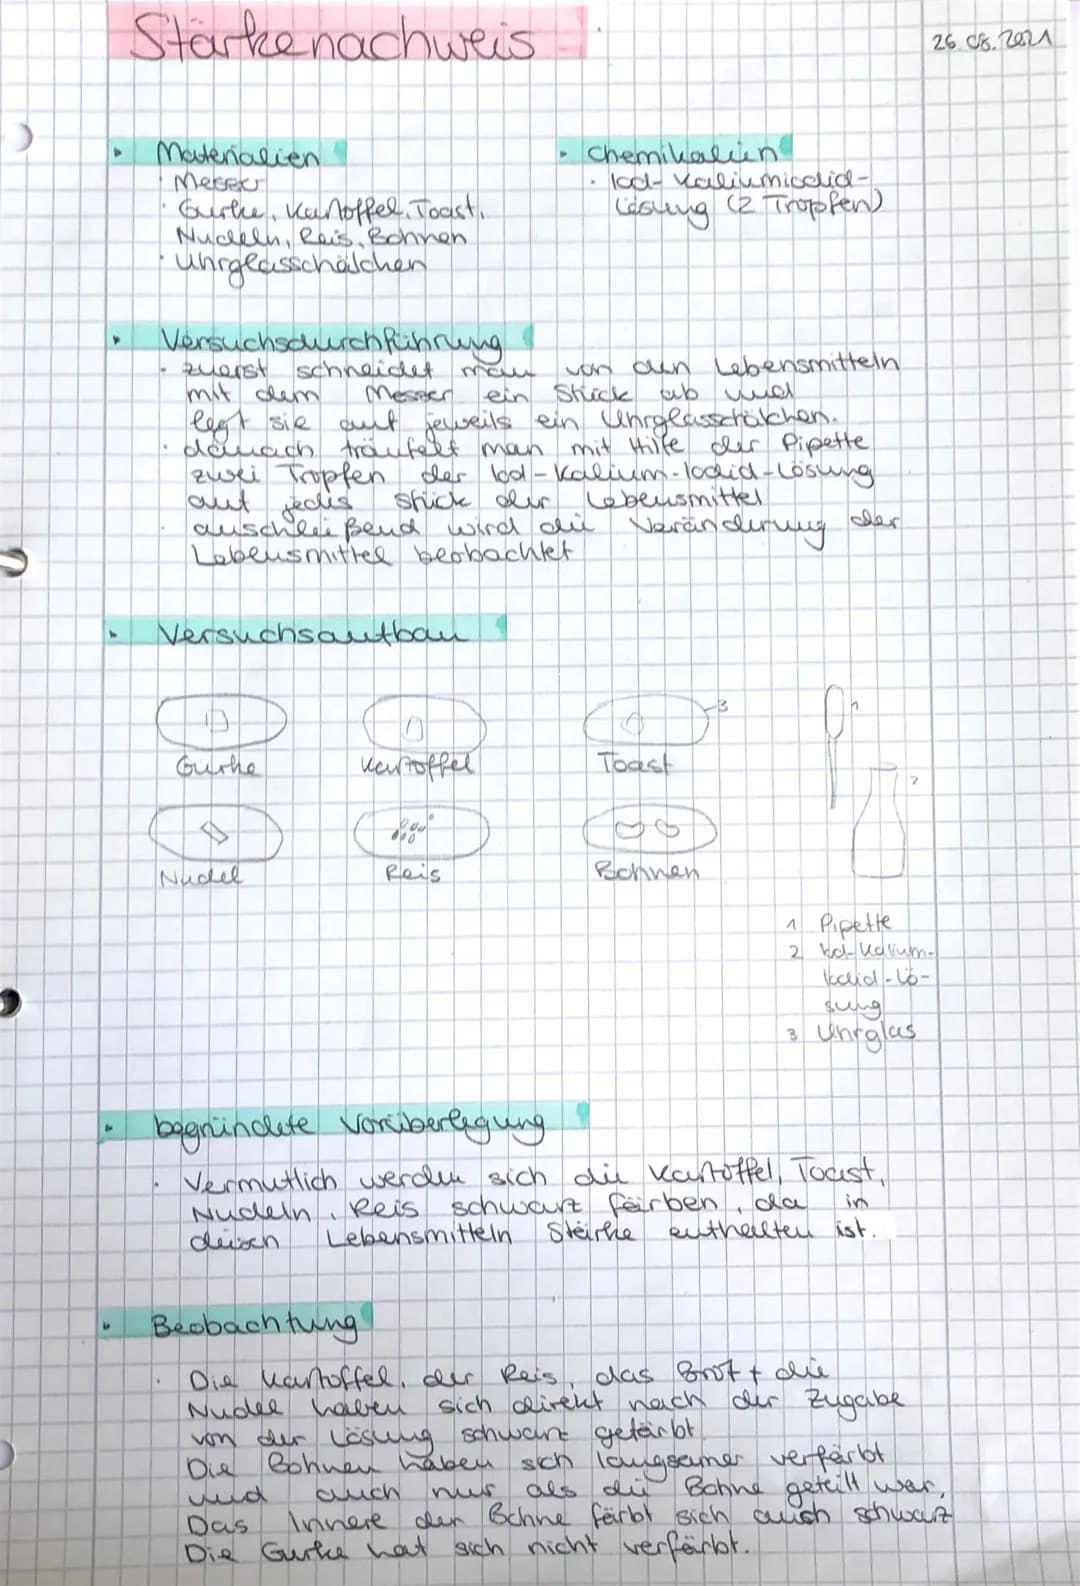 Stärkenachweis
26.08.2021
Materialien
· Messer
· Gurke, Kartoffel, Toast,
Nudeln, Reis, Bohnen
· Uhrglasschälchen
Chemikalien
· Iod-Kaliumiodid-
Lösung (2 Tropfen)
Versuchsdurchführung
· zuerst schneidet man von den Lebensmitteln
mit dem Messer ein Stück ab und
legt sie auf jeweils ein Uhrglasschälchen.
· danach träufelt man mit Hilfe der Pipette
zwei Tropfen der Iod-Kalium-Iodid-Lösung
auf jedes Stück der Lebensmittel
· anschließend wird die Veränderung der
Lebensmittel beobachtet
Versuchsaufbau
3
1
Gurke
Kartoffel
Toast
2
Nudel
Reis
Bohnen
1 Pipette
2 Iod-Kalium-
Iodid-Lö-
sung
3 Uhrglas
begründete Vorüberlegung
· Vermutlich werden sich die Kartoffel, Toast,
Nudeln, Reis schwarz färben, da in
diesen Lebensmitteln Stärke enthalten ist.
Beobachtung
· Die Kartoffel, der Reis, das Brot + die
Nudel haben sich direkt nach der Zugabe
von der Lösung schwarz gefärbt
Die Bohnen haben sich langsamer verfärbt
und auch nur als die Bohne geteilt war,
Das Innere der Bohne färbt sich auch schwarz
Die Gurke hat sich nicht verfärbt.